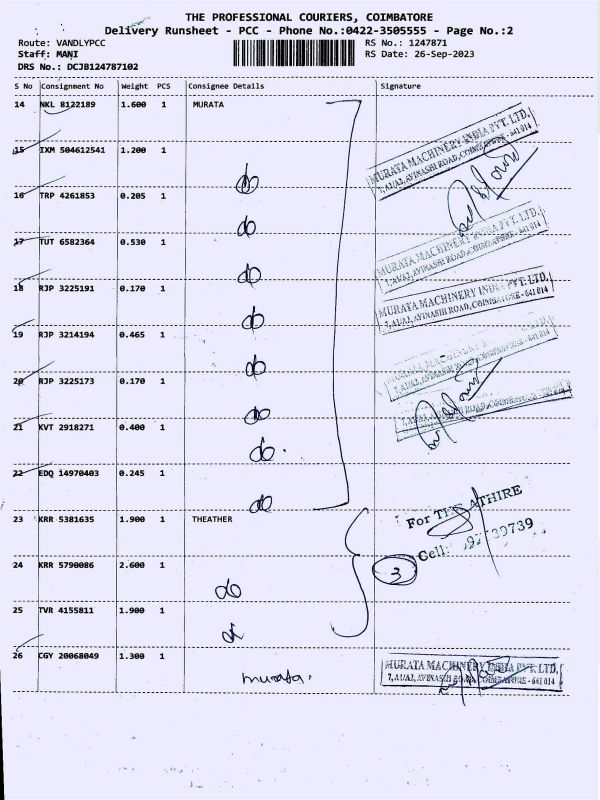 THE PROFESSIONAL COURIERS, COIMBATORE
Delivery Runsheet - PCC - Phone No.:0422-3505555 - Page No.:2
Route: VANDLYPCC RS No.: 1247871
Staff: MANI RS Date: 26-Sep-2023
DRS No.: DCJB124787102
S No Consignment No Weight PCS Consignee Details Signature
14 NKL 8122189 1.600 1 MURATA
MURATA MACHINERY INDIA PVT. LTD.
7, AI/A2, AVINASHI ROAD, COIMBATORE - 641 014
15 IXM 504612541 1.200 1
do
16 TRP 4261853 0.205 1
do
MURATA MACHINERY INDIA PVT. LTD.
7, AI/A2, AVINASHI ROAD, COIMBATORE - 641 014
17 TUT 6582364 0.530 1
do
18 RJP 3225191 0.170 1
MURATA MACHINERY INDIA PVT. LTD.
7, AI/A2, AVINASHI ROAD, COIMBATORE - 641 014
do
19 RJP 3214194 0.465 1
do
20 RJP 3225173 0.170 1
do
21 KVT 2918271 0.400 1
do
22 EDQ 14970403 0.245 1
do
23 KRR 5381635 1.900 1 THEATHER
For ATHIRE
Cell: 39739
24 KRR 5790086 2.600 1
3
do
25 TVR 4155811 1.900 1
do
26 CGY 20068049 1.300 1
murata.
MURATA MACHINERY INDIA PVT. LTD.
7, AI/A2, AVINASHI ROAD, COIMBATORE - 641 014